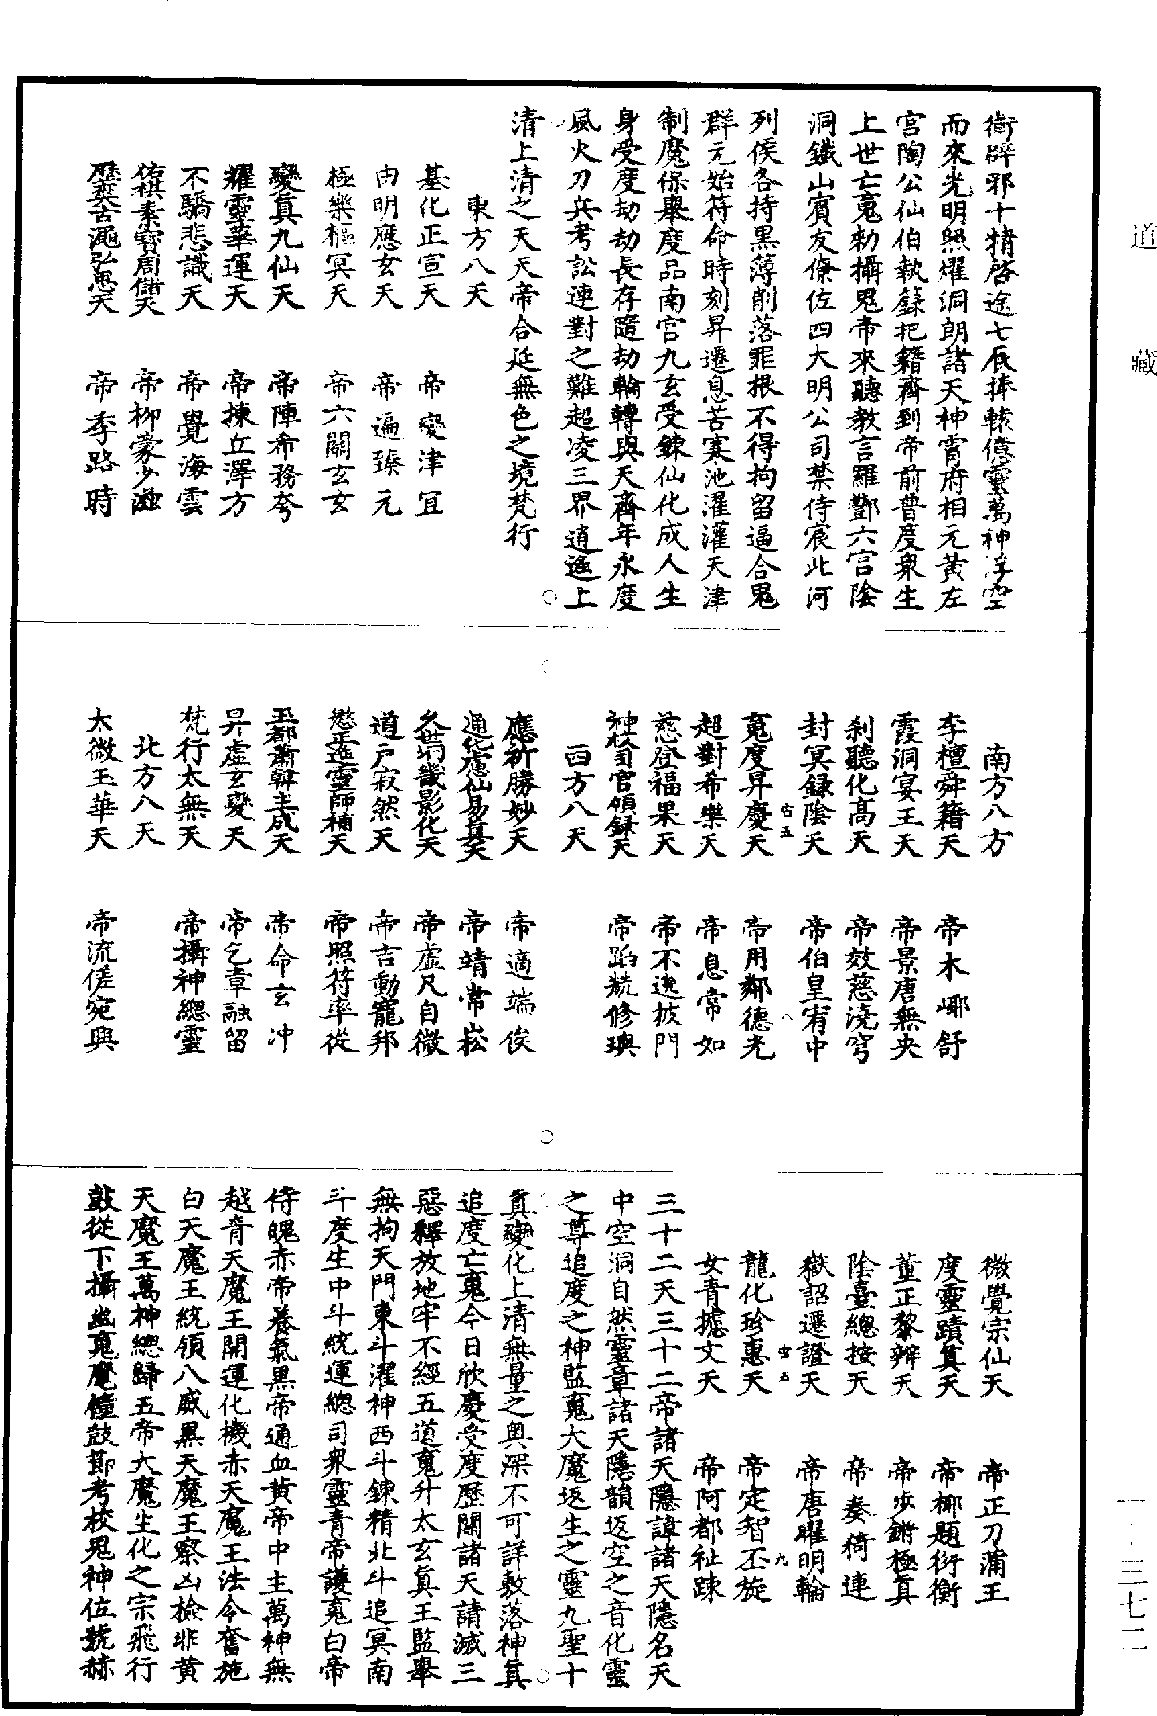 道藏
衛辟邪十精啓途七辰捧轅億靈萬神浮空
而來光明照耀洞朗諸天神霄府相元黃左
宮陶公仙伯執籙把籍齊到帝前普度衆生
上世亡䰟勑攝鬼帝來聽教言羅酆六宮陰
洞鐵山賓友僚佐四大明公司禁侍宸北河
列侯各持黑薄削落罪根不得拘留逼合鬼
群元始符命時刻昇遷息苦寒池濯灌天津
制魔保舉度品南宮九玄受鍊仙化成人生
身受度劫劫長存隨劫輪轉與天齊年永度
風火刀兵考訟連對之難超凌三界逍遙上
清上清之天天帝合延無色之境梵行
東方八天
基化正宣天　帝變津宜
內明應玄天　帝遍臻元
極樂樞冥天　帝六關玄玄
變真九仙天　帝陣希務夸
耀靈華運天　帝揀丘澤方
不驕悲識天　帝覺海雲
佑祺素寶周儲天　帝柳蒙少滋
歷奕古澠弘思天　帝季路時
南方八方
李檀舜籍天　帝木哪舒
霞洞宴王天　帝景唐無央
刹聽化高天　帝效慈澆穹
封冥錄陰天　帝伯皇宥中
䰟度昇慶天　帝用鄰德光
超對希樂天　帝息常如
慈登福果天　帝不逸披門
神松司官領錄天　帝蹈兢修璵
西方八天
應祈勝妙天　帝適端俟
通化慮仙易真天　帝靖常崧
久世洞畿影化天　帝虛尺自微
道戶寂然天　帝吉動寵邦
愍正進靈師補天　帝照符率從
玉都蕭韓主成天　帝命玄冲
昇虛玄變天　帝乞章融留
梵行太無天　帝攝神總靈
北方八天
太微玉華天　帝流傞宛興
微覺宗仙天　帝正刀蒲王
度靈蹟真天　帝梛題衍衡
董正黎辨天　帝步鏘極真
陰臺總按天　帝奏猗連
嶽詔遷證天　帝唐曜明輪
龍化珍惠天　帝定智丕旋
女青據文天　帝阿都祉踈
三十二天三十二帝諸天隱諱諸天隱名天
中空洞自然靈章諸天隱韻返空之音化靈
之尊追度之神監䰟大魔返生之靈九聖十
真變化上清無量之奧深不可詳敷落神真
追度亡䰟今日欣慶受度歷關諸天請滅三
惡釋放地牢不經五道䰟升太玄真王監舉
無拘天門東斗濯神西斗鍊精北斗追冥南
斗度生中斗統運總司衆靈青帝護䰟白帝
侍魄赤帝養氣黑帝通血黃帝中主萬神無
越青天魔王開運化機赤天魔王法令奮施
白天魔王統領八威黑天魔王察凶檢非黃
天魔王萬神總歸五帝大魔生化之宗飛行
鼓從下攝幽䰟魔幢鼓節考校鬼神位號赫
一–三七二